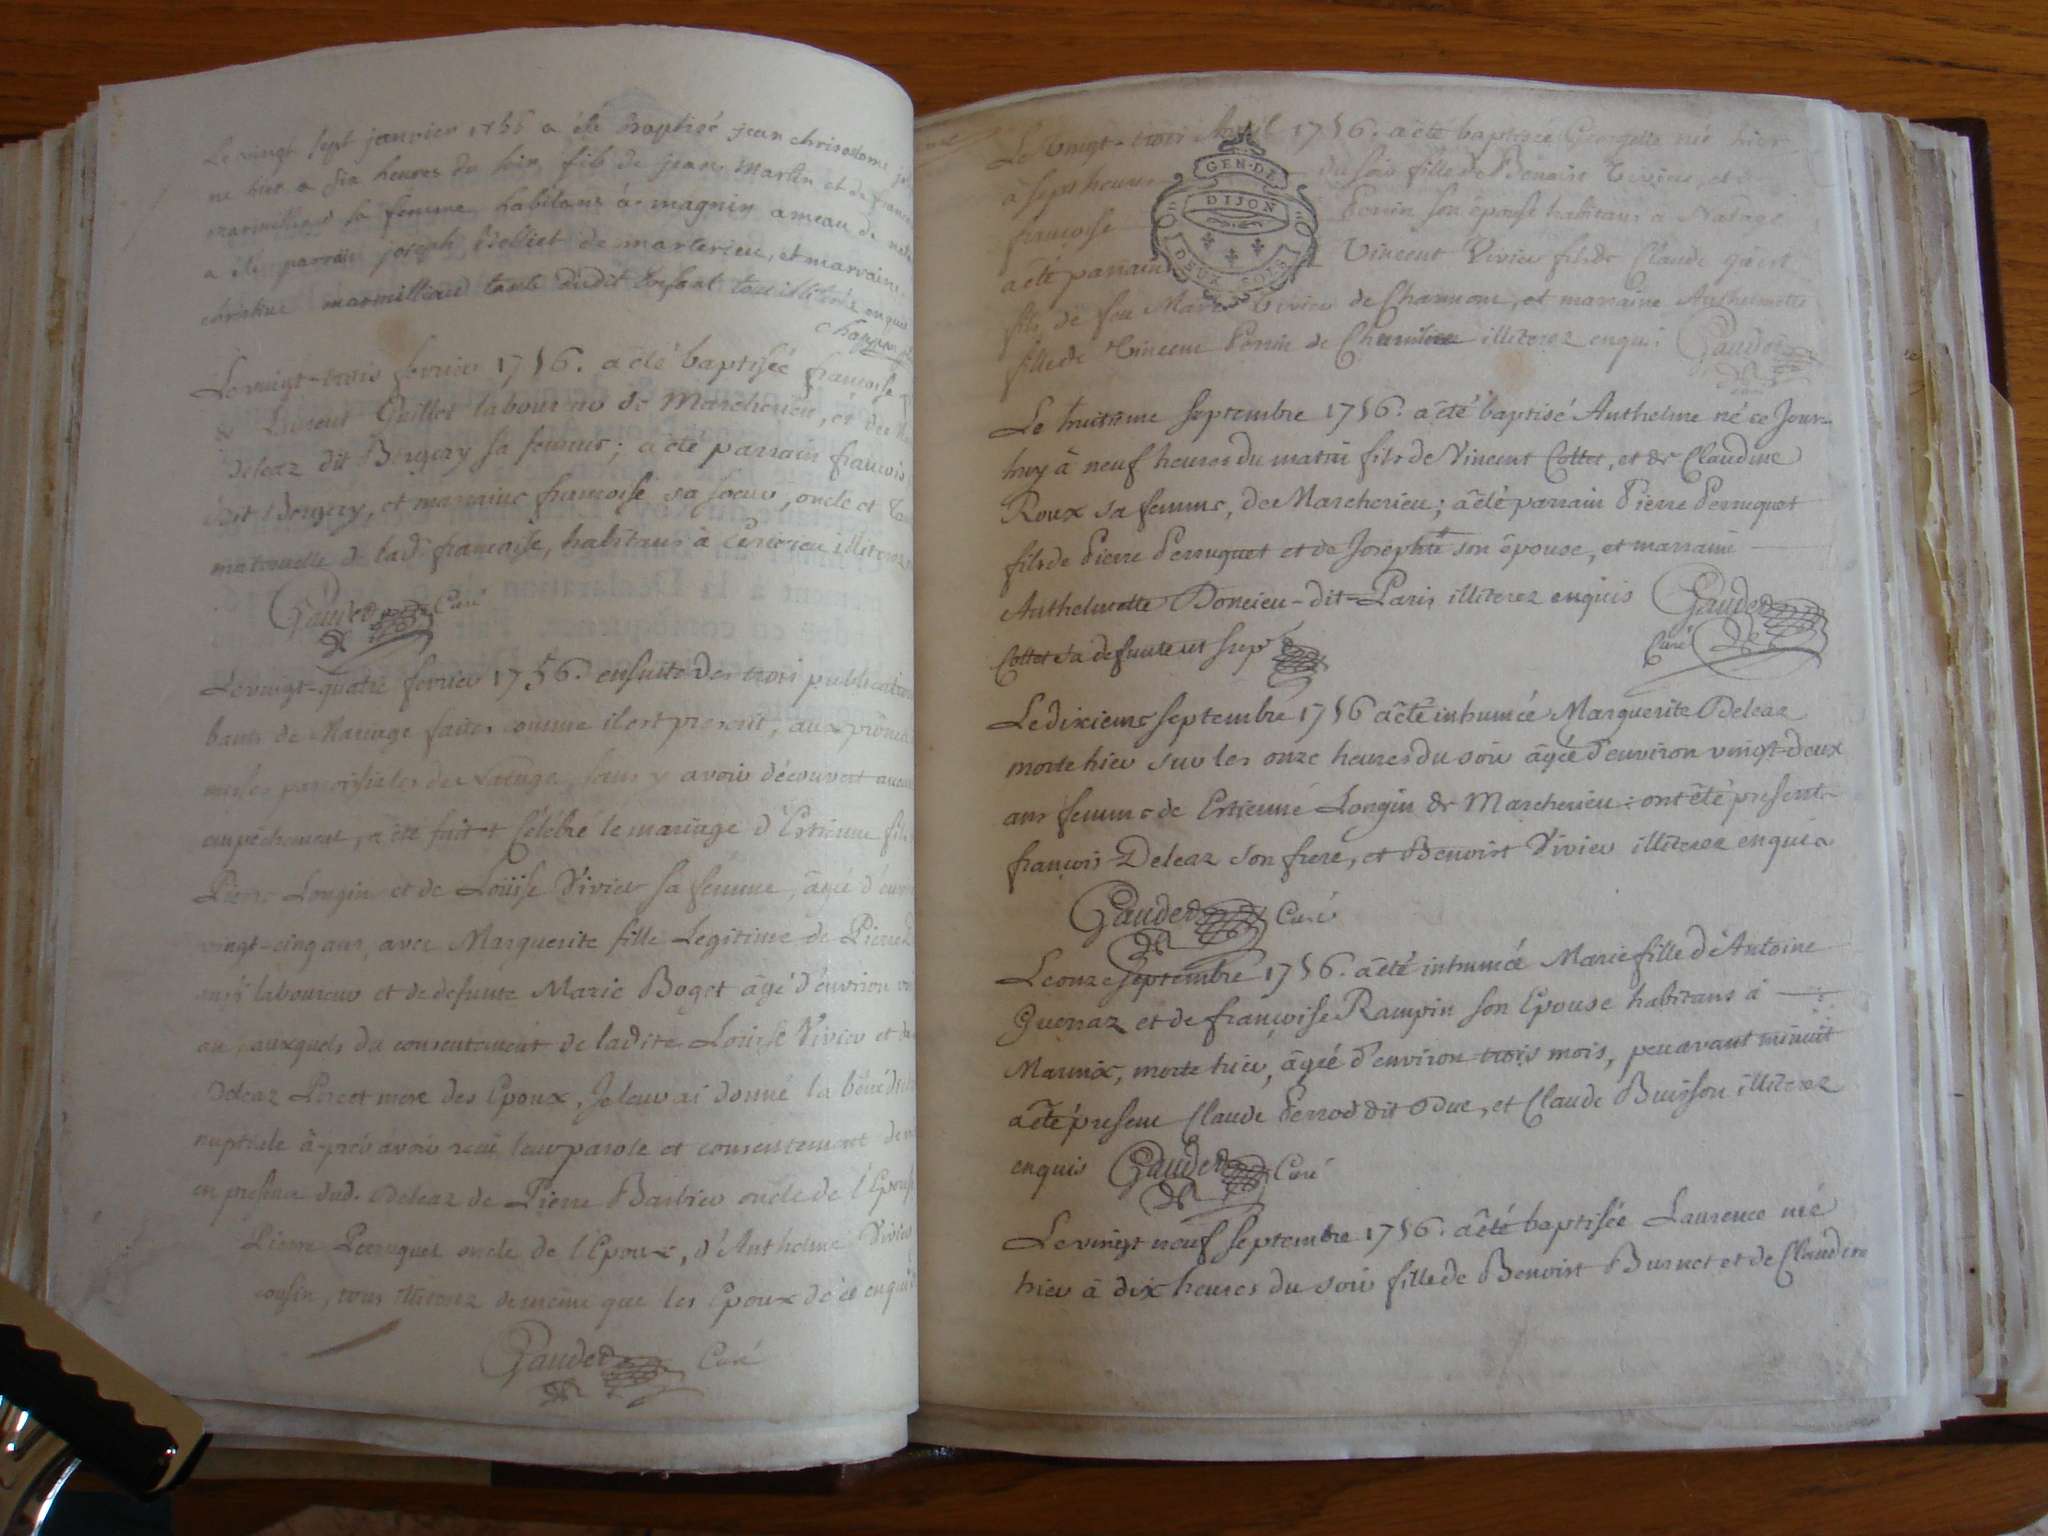 Le vingt sept janvier 1756 a été Baptisé jean chrisostome
ne hier a six heures du soir, fils de jean Martin et de
marmillion sa femme habitans à magnin ameau de
a été parrain joseph de marterieu, et marraine
christine marmilliond tante dudit Enfant tous illiterés enquis
Le vingt-trois fevrier 1756. a été baptisée françoise
de Laurent Guillet laboureur de Marcherieu, et de
Deleaz dit Bergery sa femme; a été parrain françois
dit Bergery, et marraine françoise sa soeur, oncle et
maternelle de lad. françoise, habitans à illiterez
Gaudet Curé
Le vingt-quatre fevrier 1756. ensuite des trois publications
bans de Mariage faites comme il est prescrit, aux prônes
messes paroissiales de Natage, sans y avoir découvert aucun
empêchement, a été fait et Célébré le mariage d'Estienne fils
Pierre Longin et de Loüise Vivier sa femme, âgé d'environ
vingt-cinq ans, avec Marguerite fille Legitime de Pierre
laboureur et de defunte Marie Boget âgé d'environ
auxquels du consentement de ladite Louise Vivier et
Deleaz Pere et mere des Epoux, Je leur ai donné la bénédiction
nuptiale â-prés avoir reçu leur parole et consentement
en presence dud. Deleaz de Pierre Barbier oncle de l'Epouse
Pierre Perruquet oncle de l'Epoux, d'Anthelme Vivier
cousin, tous illiterez de même que les Epoux de ce enquis
Gaudet Curé
Le vingt-trois Avril 1756. a été baptisée Georgette née hier
à sept heures du soir fille de Benoist Vivier, et
françoise Perrin son épouse habitans a Natage
a été parrain Vincent Vivier fils de Claude
fils de feu Vivier de Charmont, et marraine Anthelmette
fille de Vincent Perrin de illiterez enquis Gaudet
GEN·DE
DIJON
DEUX SOLS
Le huitième septembre 1756. a été baptisé Anthelme né ce Jour-
huy â neuf heures du matin fils de Vincent Collet, et de Claudine
Roux sa femme, de Marcherieu; a été parrain Pierre Perruquet
fils de Pierre Perruquet et de Josephte son épouse, et marraine
Anthelmette Doncieu-dit-Paris illiterez enquis Gaudet
Collet sa defunte ut sup Curé
Le dixieme septembre 1756 a été inhumée Marguerite Deleaz
morte hier sur les onze heures du soir âgée d'environ vingt-deux
ans femme de Estienne Longin de Marcherieu: ont été present-
françois Deleaz son frere, et Benoist Vivier illiterez enquis
Gaudet Curé
Le onze septembre 1756. a été inhumée Marie fille d'Antoine
Guerraz et de françoise Rampin son Epouse habitans à
Marnix, morte hier, âgée d'environ trois mois, peu avant minuit
a été present Claude Perrod dit Duc, et Claude Buisson illiterez
enquis Gaudet Curé
Le vingt neuf septembre 1756. a été baptisée Laurence née
hier à dix heures du soir fille de Benoist Burnet et de Claudine